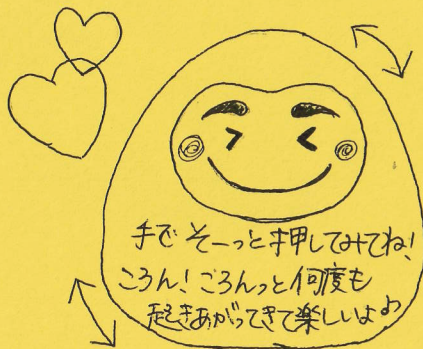 手でそーっと押してみてね!
ころん!ごろんっと何度も
起きあがってきて楽しいよ♪